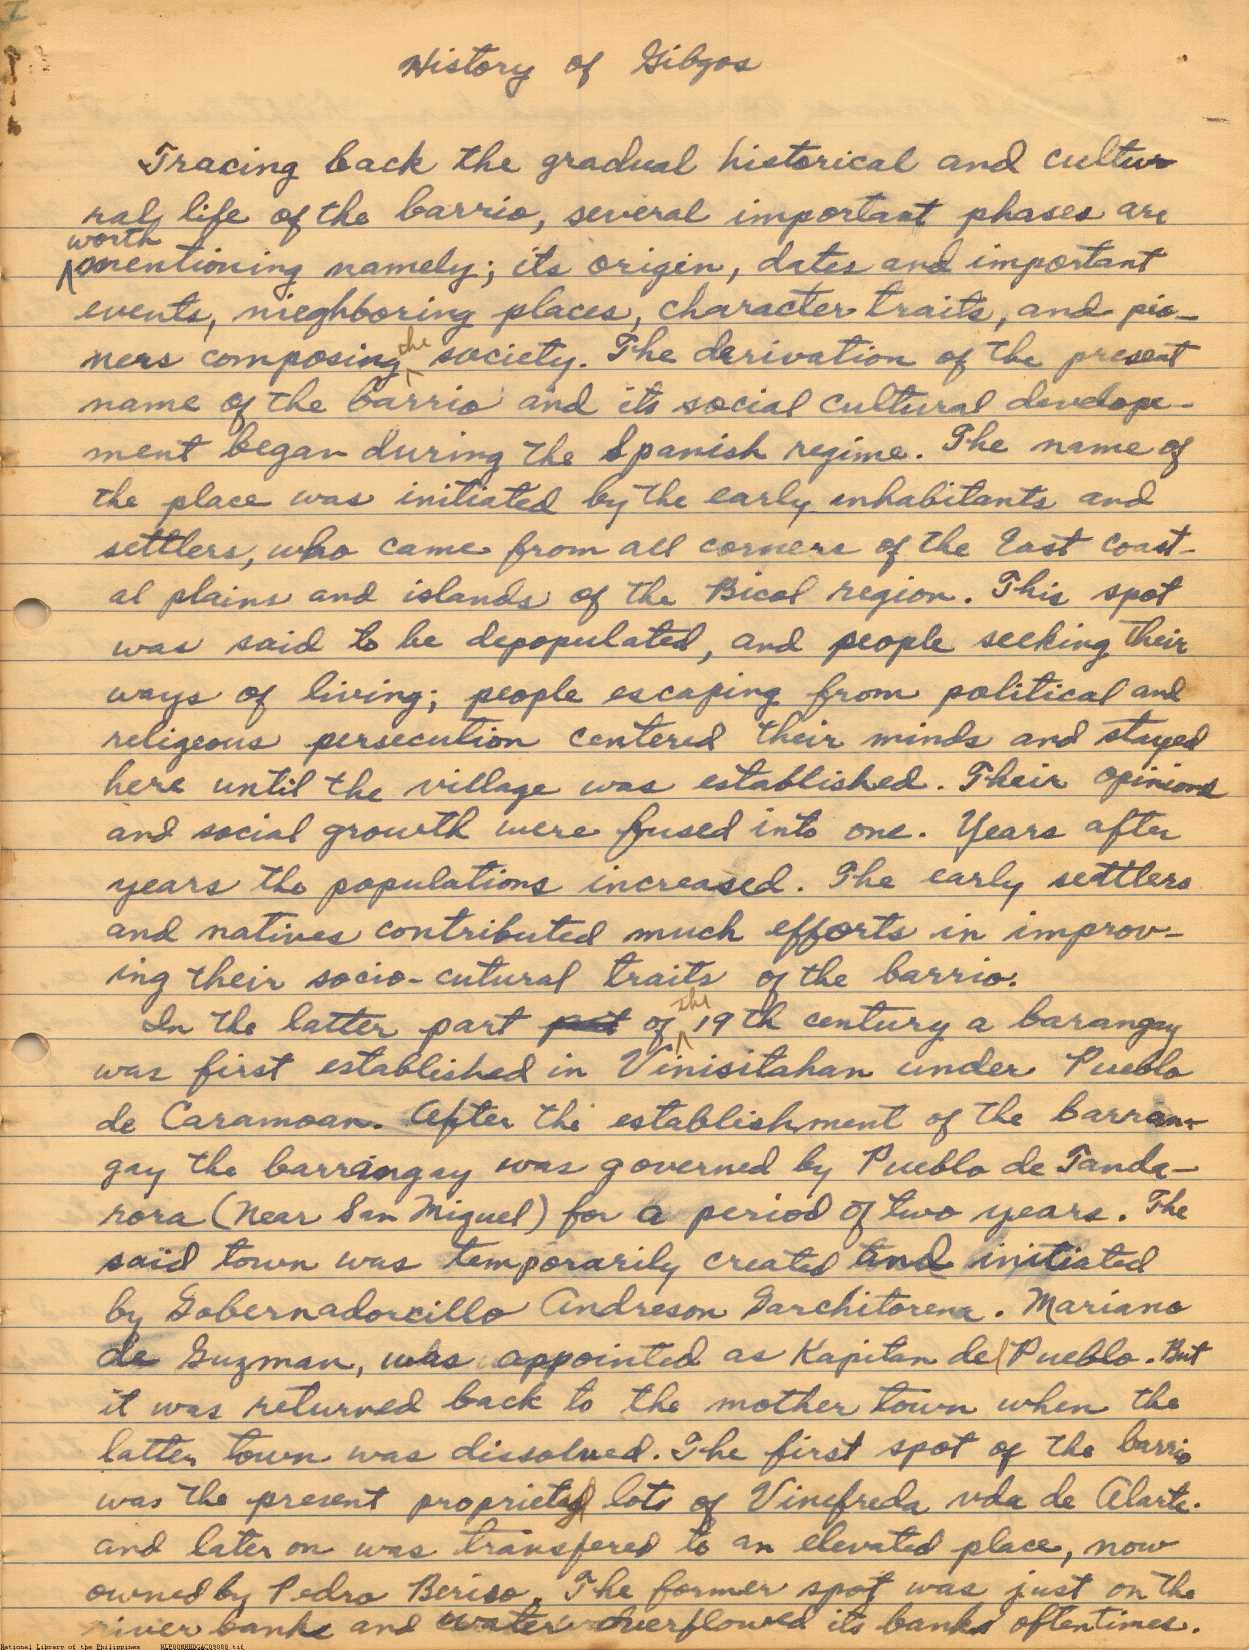 History of Gibgos
Tracing back the gradual historical and cultur
ral life of the barrio, several important phases are
worth
mentioning namely; its origin, dates and important
events, nieghboring places, character traits, and pio-
ners composing the society. The derivation of the present
name of the barrio and its social cultural develope-
ment began during the Spanish regime. The name of
the place was initiated by the early inhabitants and
settlers, who came from all corners of the East coast-
al plains and islands of the Bicol region. This spot
was said to be depopulated, and people seeking their
ways of living; people escaping from political and
religeous persecution centered their minds and stayed
here until the village was established. Their opinions
and social growth were fused into one. Years after
years the populations increased. The early settlers
and natives contributed much efforts in improv-
ing their socio-cutural traits of the barrio.
In the latter part part of the 19th century a barangay
was first established in Vinisitahan under Pueblo
de Caramoan. After the establishment of the barran-
gay the barrangay was governed by Pueblo de Tanda-
rora (Near San Miguel) for a period of two years. The
said town was temporarily created and initiated
by Gobernadorcillo Andreson Garchitorena. Mariano
de Guzman, was appointed as Kapitan del Pueblo. But
it was returned back to the mother town when the
latter town was dissolved. The first spot of the barrio
was the present lots of Vinefreda vda de Alarte.
and later on was transfered to an elevated place, now
owned by Pedro Beriso. The former spot was just on the
river banks and water overflowed its banks oftentimes.
National Library of the Philippines